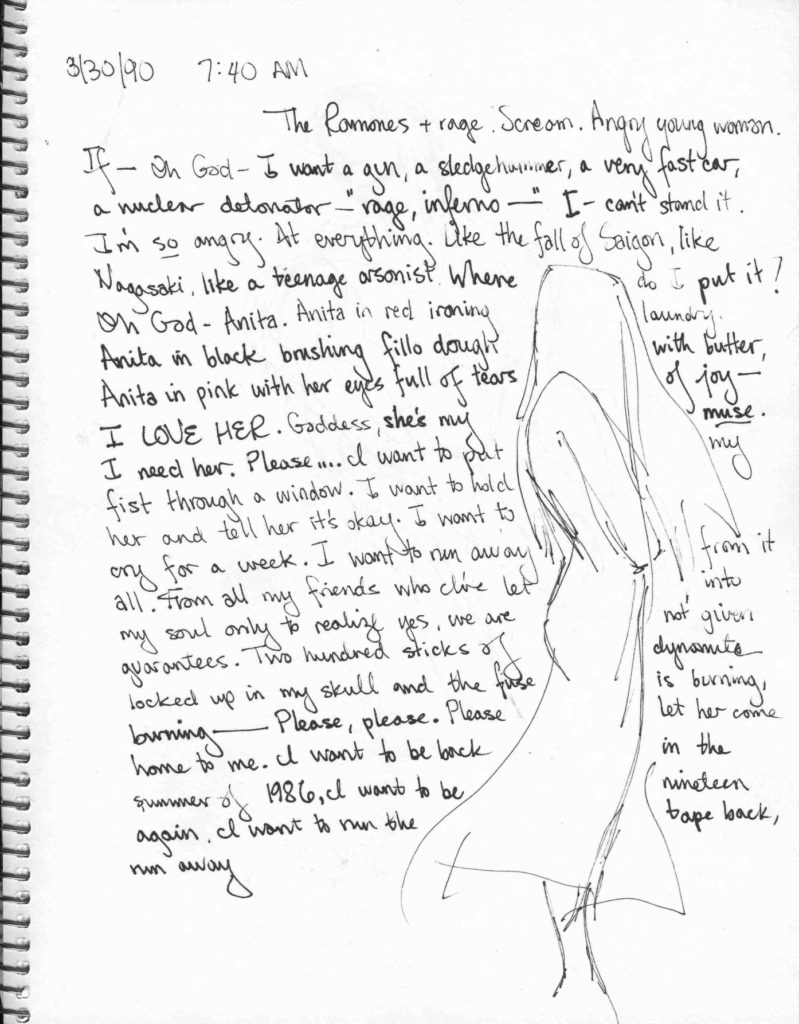 3/30/90 7:40 AM
The Ramones + rage. Scream. Angry young woman.
If — Oh God — I want a gun, a sledgehammer, a very fast car,
a nuclear detonator — "rage, inferno —" I — can't stand it.
I'm so angry. At everything. Like the fall of Saigon, like
Nagasaki, like a teenage arsonist. Where do I put it?
Oh God - Anita. Anita in red ironing laundry.
Anita in black brushing fillo dough with butter,
Anita in pink with her eyes full of tears of joy —
I LOVE HER. Goddess, she's my muse.
I need her. Please.... I want to put my
fist through a window. I want to hold
her and tell her it's okay. I want to
cry for a week. I want to run away from it
all. From all my friends who I've let into
my soul only to realize yes, we are not given
guarantees. Two hundred sticks of dynamite
locked up in my skull and the fuse is burning,
burning —— Please, please. Please let her come
home to me. I want to be back in the
summer of 1986, I want to be nineteen
again. I want to run the tape back,
run away